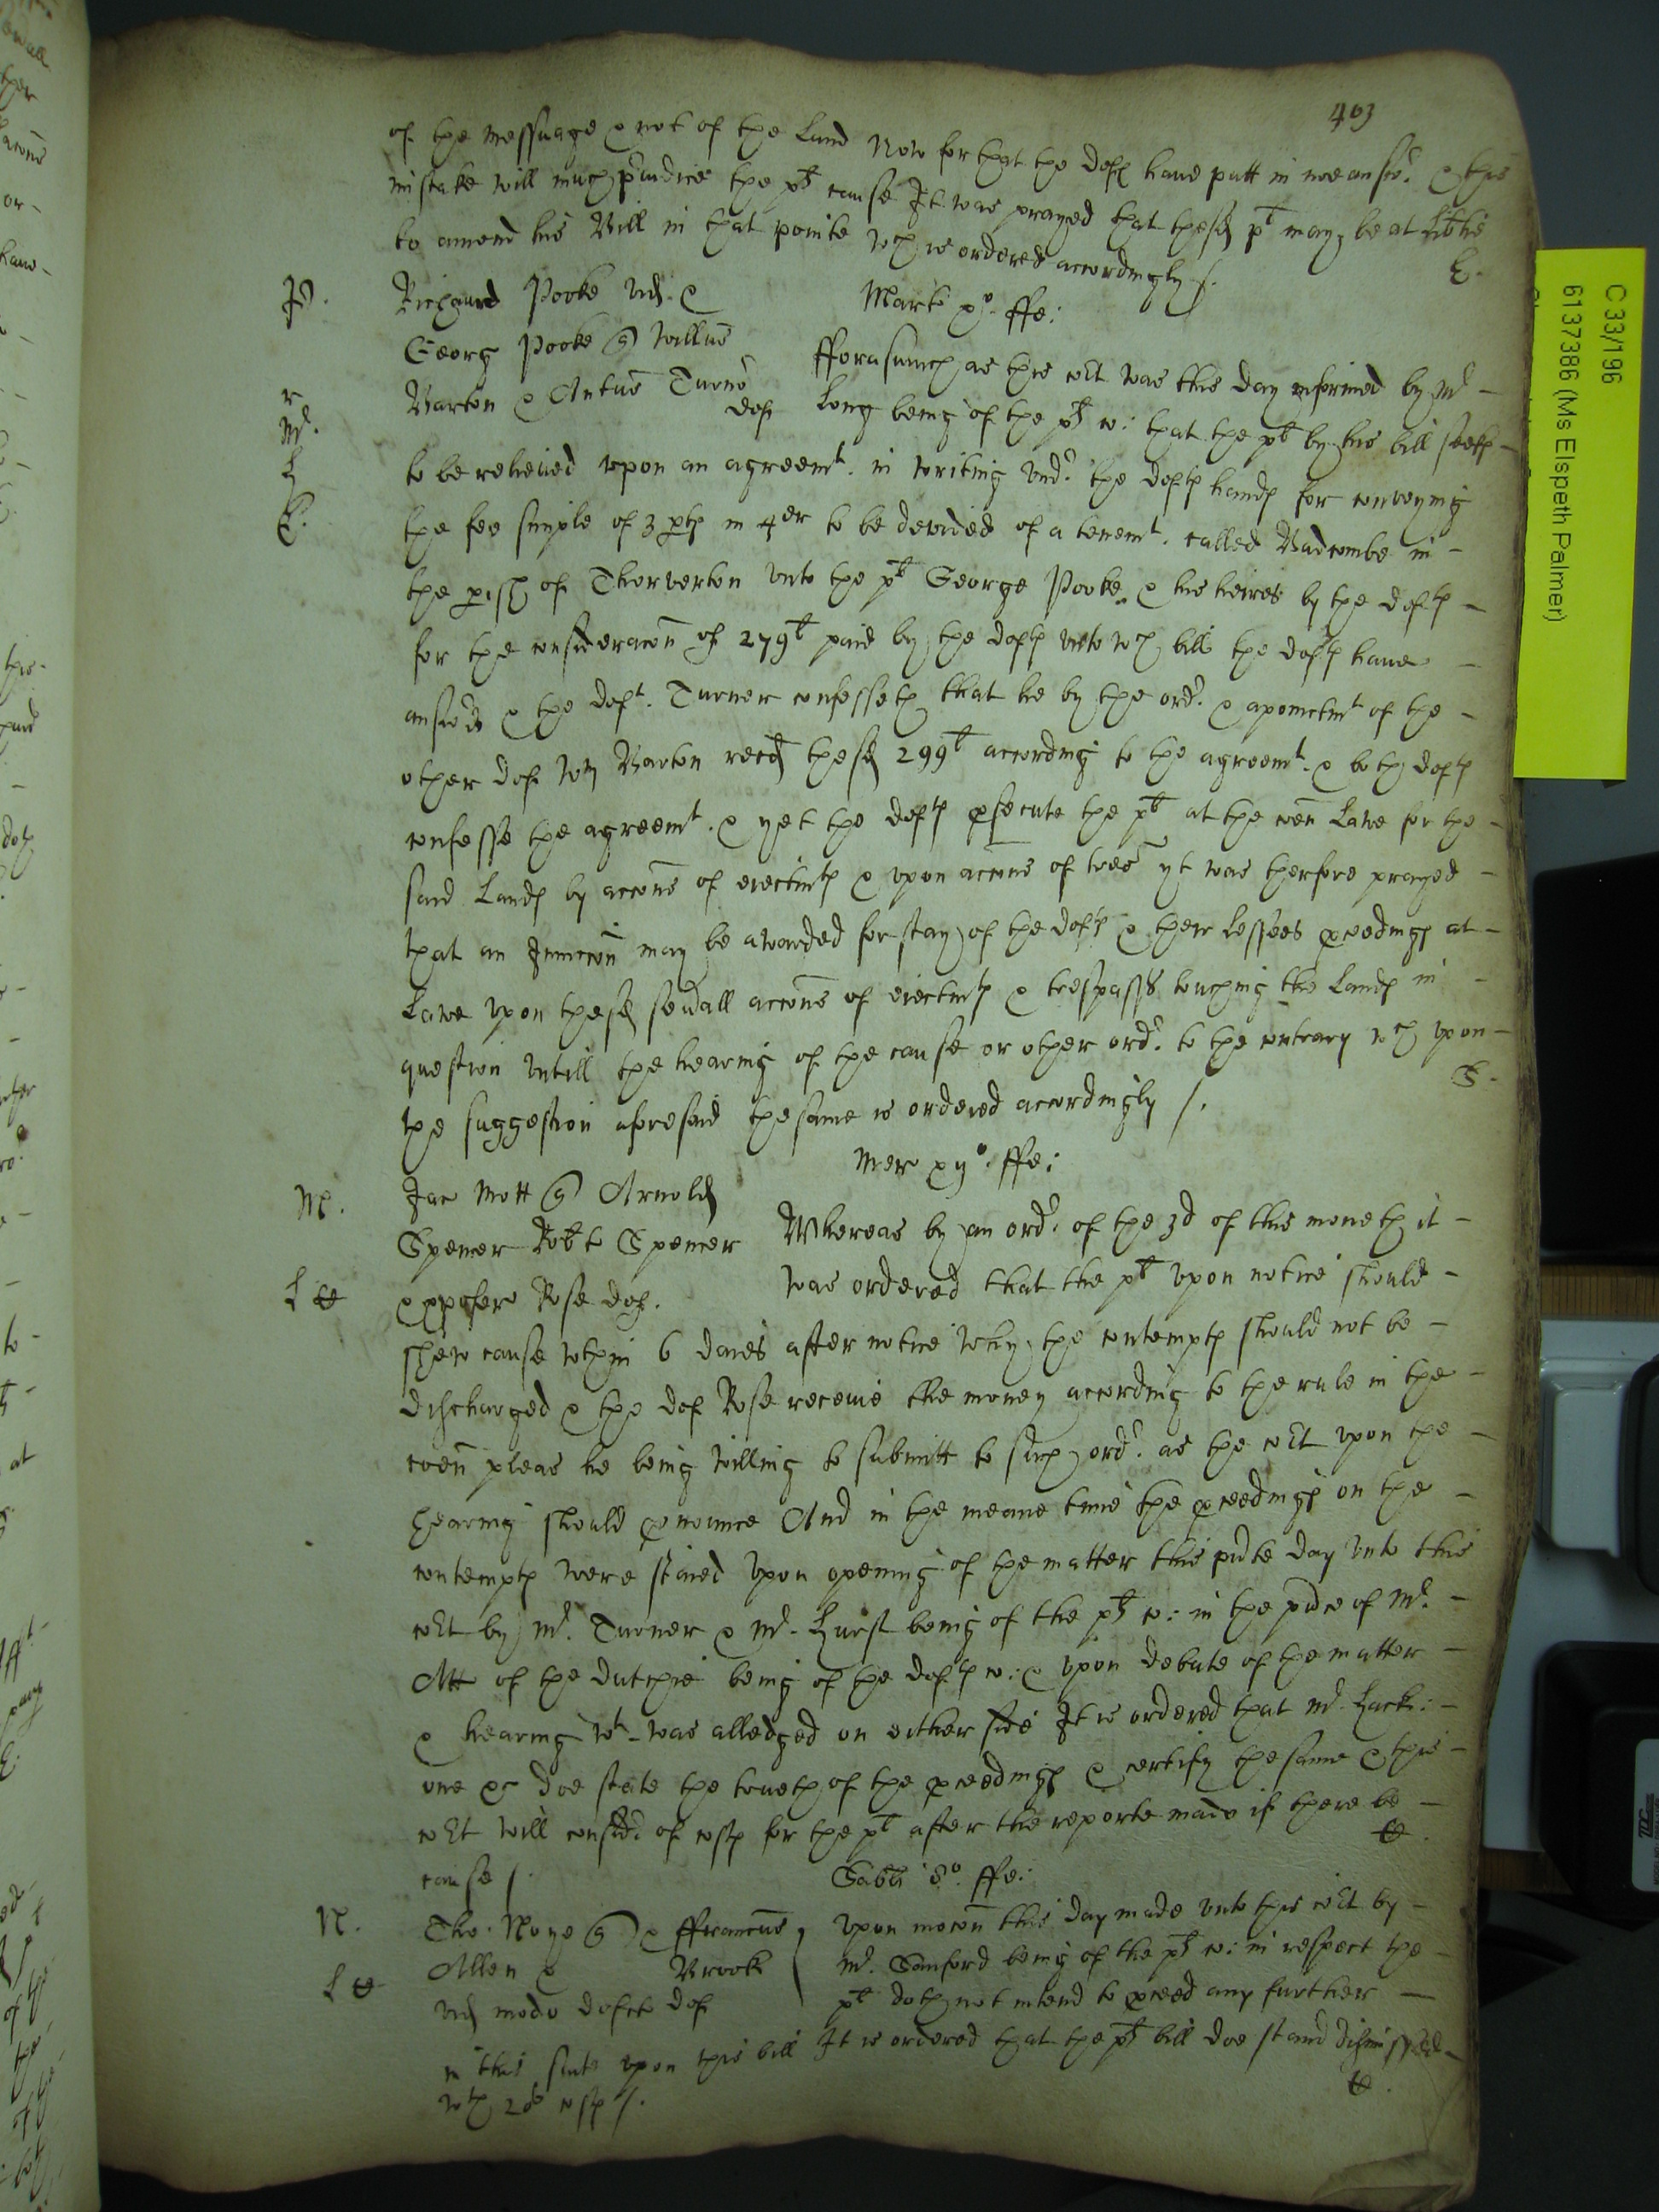 403
of the messuage & not of the land Now for that the defts have putt in noe answr. & the
mistake will much p'iudice the plts cause It was prayed that the sd plt may be at lib'tie
to amend his Bill in that pointe wch is ordered accordingly /.
E.
P.
Richard Pooke vid. &
Georg Pooke q Willus
Barton & Antus Turnor
deft
Marte xo. ffe:
r
M.
L
E.
fforasmuch as this cort was this day informed by Mr –
Long being of the plts co: that the plt by his bill seeks –
to be relieued vpon an agreemt. in writing vndr. the defts hands for conveying
the fee simple of 3 pts in 4er to be devided of a tenemt. called Badcombe in –
the pish of Thorverton vnto the plt George Pooke & his heires by the defts –
for the consideracon of 279l paid by the defts vnto wch bill the defts have –
answerd & the deft. Turner confesseth that he by the ordr. & apointmt of the –
other deft Wm Barton recd the sd 299l according to the agreemt. & both defts
confesse the agreemt. & yet the defts psecute the plt at the coen Lawe for the –
said Lands by accons of eiectmts & vpon accons of tres yt was therfore prayed –
that an Iniuncon may be awarded for stay of the defts & their lessees pceedings at –
Lawe vpon the sd seu'all accons of eiectmts & trespasse touching the lands in –
question vntill the hearing of the cause or other ordr. to the contrary wch vpon –
the suggestion aforesaid the same is ordered accordingly /.
S.
Mer xijo. ffe:
M.
Jac Mott q Arnold
Spencer Robt Spencer
& Rose deft.
L
Whereas by an ordr. of the 3d of this moneth it –
was ordered that the plt vpon notice should –
shew cause wthin 6 daies after notice why the contempts should not be –
discharged & the deft Rose receiue the money according to the rule in the –
coen pleas he being willing to submitt to such ordr. as the cort vpon the –
hearing should pnounce And in the meane time the pceedings on the –
contempts were staied Vpon opening of the matter this pnte day vnto this
cort by Mr. Turner & Mr. Hurst being of the plts co: in the pnce of Mr. –
Att of the dutchie being of the defts co: & vpon debate of the matter –
& hearing wt was alledged on either side It is ordered that Mr. –
one &c doe state the trueth of the pceedings & certify the same & this –
cort will considr of costs for the plt after the reporte made if there be –
cause /.
Sabti 8o. ffe:
N.
Tho. Noye q & ffrancus
Allen & Brooke
vid modo defcto deft
L
Vpon mocon this day made vnto this cort by –
Mr. Sanford being of the plts co: in respect the –
plt doth not intend to pceed any further –
in this suite vpon this bill It is ordered that the plts bill doe stand dismissed –
wth 20s costs /.
C 33/196
6137386 (Ms Elspeth Palmer)